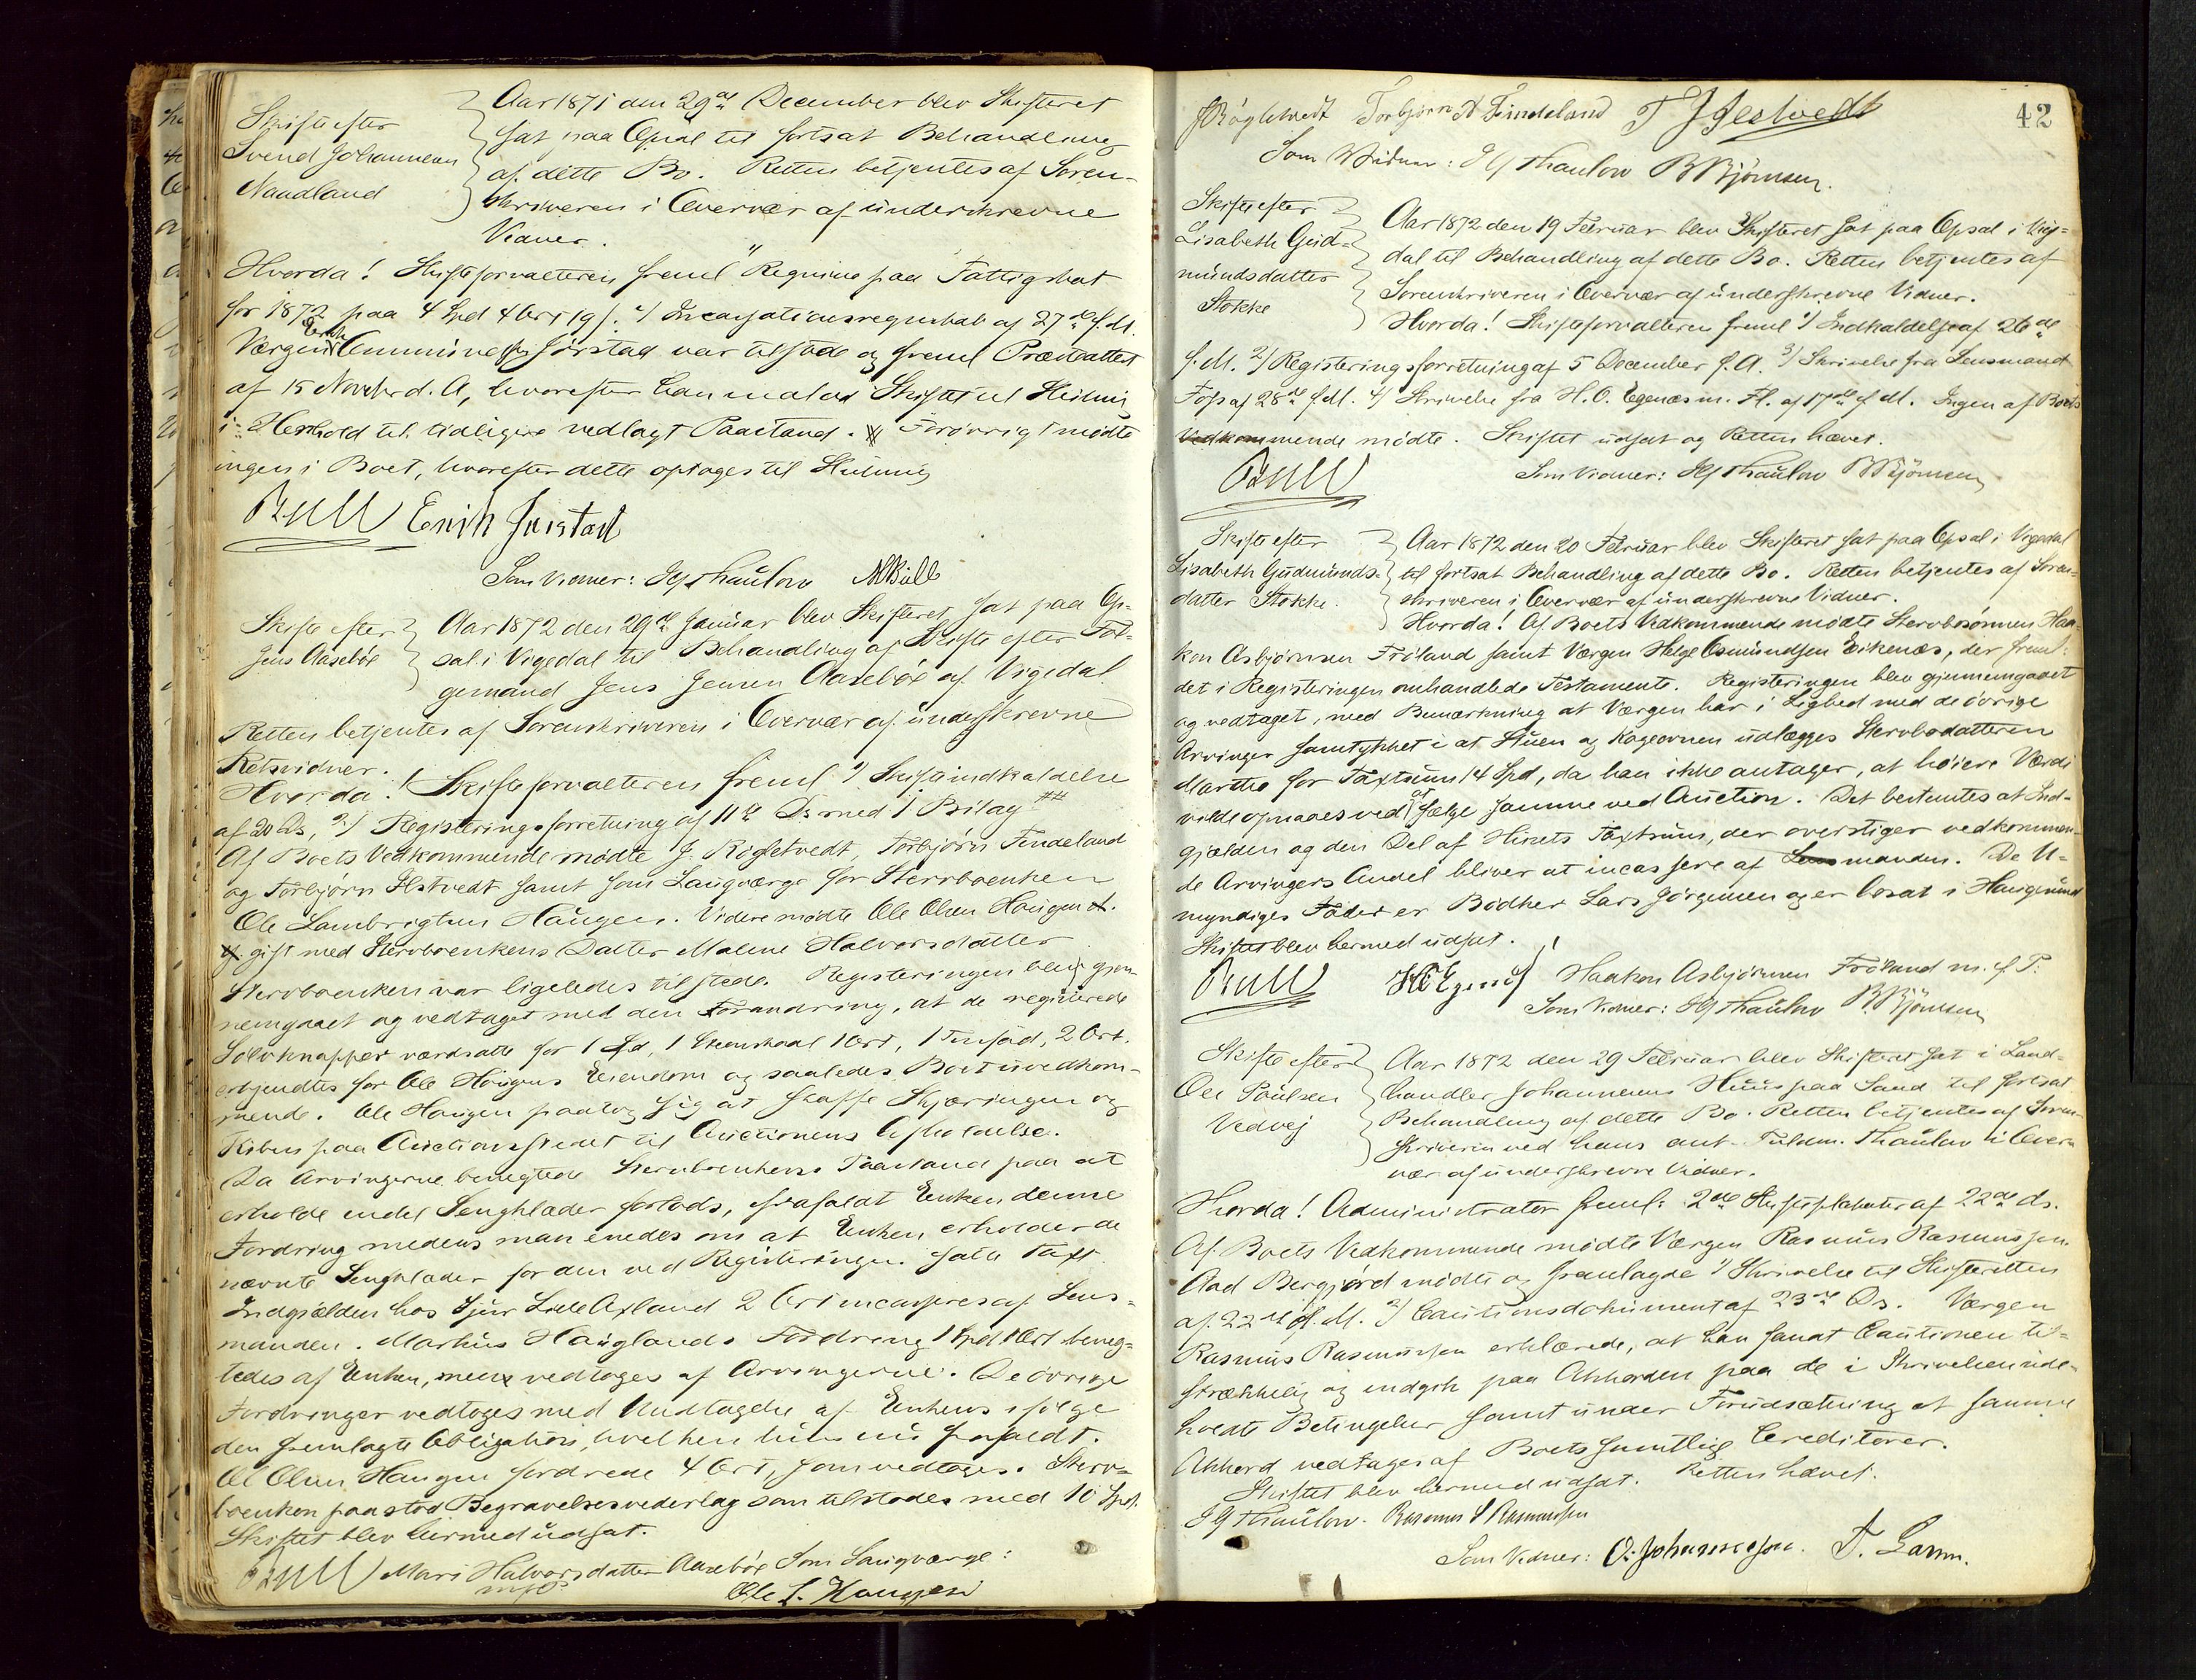 Skifte efter
Svend Johannesen
Naadland
Aar 1871 den 29de December blev Skifteret
sat paa Opsal til fortsat Behandling
af dette Bo. Retten betjentes af Soren-
skriveren i Overvær af underskrevne
Vidner.
Hvorda! Skifteforvalteren freml 1) Regning paa Fattigskat
for 1872 paa 4 Spd 4 Ort 19 s. 2) Incassationsregnskab af 27de f. M.
Værgen Erik Jørstad var tilstede og freml Præsteattest
af 15 Novbr d. A, hvorefter han indlod Skiftet til Slutning
i Henhold til tidligere vedlagt Paastand. Forøvrigt mødte
ingen i Boet, hvorefter dette optages til Slutning
Bull Erik Jørstad
Som Vidner: JG Thaulow MBull
Skifte efter
Jens Aasebøe
Aar 1872 den 29de Januar blev Skifteret sat paa Op-
sal i Vigedal til Behandling af Skifte efter Føl-
gemand Jens Jensen Aasebøe af Vigedal
Retten betjentes af Sorenskriveren i Overvær af underskrevne
Retsvidner.
Hvorda! Skifteforvalteren freml 1) Skifteindkaldelse
af 20 Ds, 2) Registeringsforretning af 11te Ds med 1 Bilag
Af Boets Vedkommende mødte J. Røgletvedt, Torbjørn Tindeland
og Torbjørn Ilstvedt samt som Laugværge for Stervboenken
Ole Lambrigtsen Haugen. Videre mødte Ole Olsen Haugen
gift med Stervboenkens Datter Malene Halvorsdatter
Stervboenken var ligeledes tilstede. Registeringen blev gjen-
nemgaaet og vedtaget med den Forandring, at de registrerede
Sølvknapper værdsatte for 1 Spd, 1 Ort, 1 2 Ort.
erkjendtes for Ole Haugens Eiendom og saaledes Boet uvedkom-
mende. Ole Haugen paatog sig at skaffe Skjæringen og
Kiben paa Auctionsstedet til Auctionens Afholdelse.
Da Arvingerne benegtede Stervboenkens Paastand paa at
erholde endel Sengklæder forlods, frafaldt Enken denne
Fordring medens man enedes om at Enken erholder de
nævnte Sengklæder for den ved Registeringen satte Taxt
Indgjælden hos Sjur Lille Axland 2 Ort incasseres af Lens-
manden. Markus Hauglands Fordring 1 Spd 1 Ort beneg-
tedes af Enken, men vedtoges af Arvingerne. De øvrige
Fordringer vedtoges med Undtagelse af Enkens ifølge
den fremlagte Obligation, hvilken hun nu frafaldt.
Ole Olsen Haugen fordrede 4 Ort, som vedtoges. Sterv-
boenken paastod Begravelsesvederlag som tilstodes med 10 Spd.
Skiftet blev hermed udsat.
Bull Mari Halvorsdatter Aasebøe Som Laugværge:
m. f. P. Ole L. Haugen
42
J Røgletvedt Torbjørn A Tindeland T J Ilestvedt
Som Vidner: J G Thaulow B Bjørnsen.
Skifte efter
Lisabeth Gud-
mundsdatter
Stokke
Aar 1872 den 19 Februar blev Skifteret sat paa Opsal i Vige-
dal til Behandling af dette Bo. Retten betjentes af
Sorenskriveren i Overvær af underskrevne Vidner.
Hvorda! Skifteforvalteren freml 1) Indkaldelse af 26de
f. M. 2) Registeringsforretning af 5 December f. A. 3) Skrivelse fra Lensmand
Foss af 28de f. M. 4) Skrivelse fra H. O. Egenæs m. Fl. af 17de f. M. Ingen af Boets
Vedkommende mødte. Skiftet udsat og Retten hævet.
Bull
Som Vidner: JG Thaulow B Bjørnsen
Skifte efter
Lisabeth Gudmunds-
datter Stokke.
Aar 1872 den 20 Februar blev Skifteret sat paa Opsal i Vigedal
til fortsat Behandling af dette Bo. Retten betjentes af Soren-
skriveren i Overvær af underskrevne Vidner.
Hvorda! Af Boets Vedkommende mødte Stervbosønnen Haa-
kon Asbjørnsen Frøland samt Værgen Helge Osmundsen Eikenæs, der freml:
det i Registeringen omhandlede Testamente. Registeringen blev gjennemgaaet
og vedtaget, med Bemærkning at Værgen har i Lighed med de øvrige
Arvinger samtykket i at Stuen og Kogeovnen udlægges Stervbodatteren
Marthe for Taxtsum 14 Spd, da han ikke antager, at høiere Værdi
vilde opnaaes ved at sælge samme ved Auction. Det bestemtes at Ind-
gjælden og den Del af Husets Taxtsum, der overstiger vedkommen-
de Arvingers Andel bliver at incassere af Lensmanden. De U-
myndiges Fader er Bødker Lars Jørgensen og er bosat i Haugesund
Skiftet blev hermed udsat.
Bull HOEgenes Haakon Asbjørnsen Frøland m. f. P.
Som Vidner: JG Thaulow B. Bjørnsen
Skifte efter
Ole Paulsen
Vedvej
Aar 1872 den 29 Februar blev Skifteret sat i Land-
handler Johannesens Huus paa Sand til fortsat
Behandling af dette Bo. Retten betjentes af Soren-
skriveren ved hans aut. Fuldm. Thaulow i Over-
vær af underskrevne Vidner.
Hvorda! Administrator freml: 2de Skifteplakater af 22de ds.
Af Boets Vedkommende mødte Værgen Rasmus Rasmussen.
Aad Bergjord mødte og fremlagde 1) Skrivelse til Skifteretten
af 22de f. M. 2) Cautionsdokument af 23de Ds. Værgen
Rasmus Rasmussen erklærede, at han fandt Cautionen til-
strækkelig og indgik paa Akkorden paa de i Skrivelsen inde-
holdte Betingelser samt under Forudsætning at samme
Akkord vedtages af Boets samtlige Creditorer.
Skiftet blev hermed udsat. Retten hævet.
J G Thaulow. Rasmus S Rasmussen
Som Vidner: O. Johannesen. T. Larm.